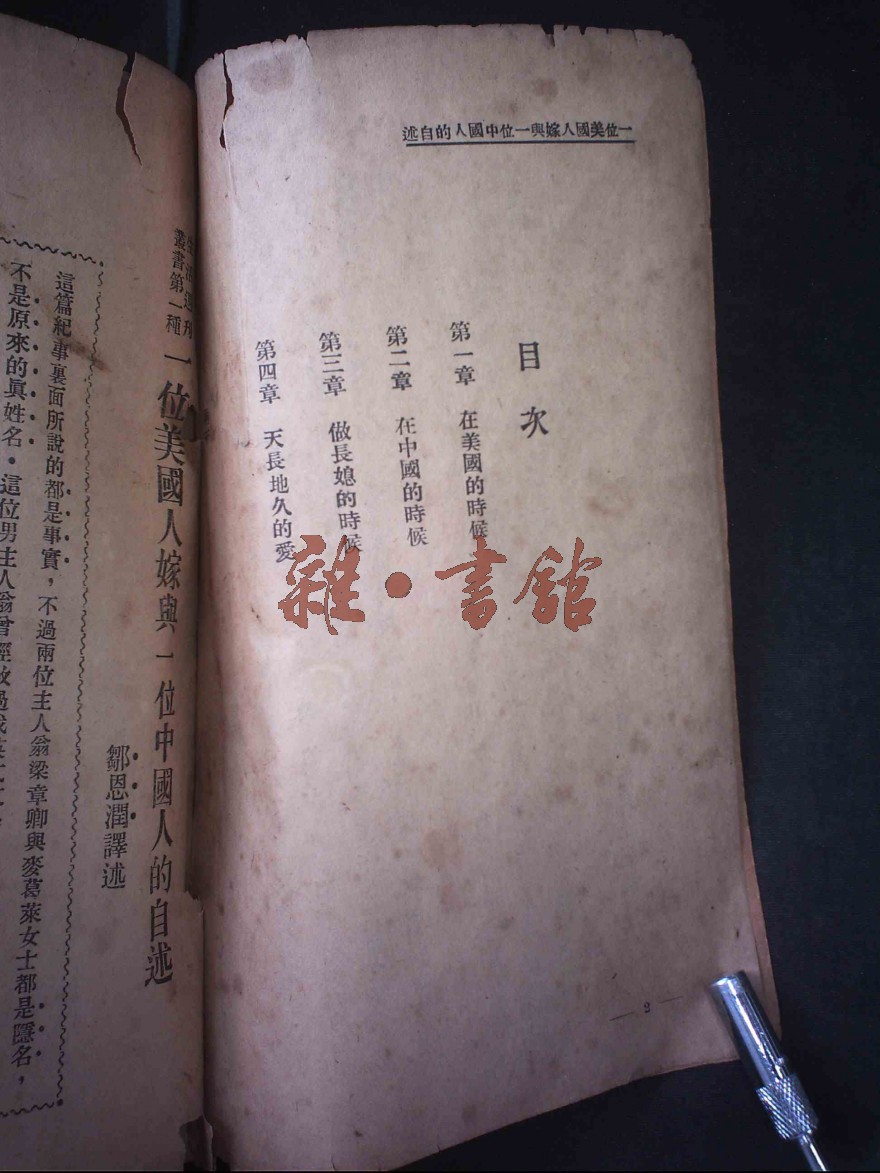 一位美國人嫁與一位中國人的自述
目次
第一章 在美國的時候
第二章 在中國的時候
第三章 做長媳的時候
第四章 天長地久的愛
— 2 —
雜·書館
叢書第一種
一位美國人嫁與一位中國人的自述
鄒恩潤譯述
這篇紀事裏面所說的都是事實，不過兩位主人翁梁章卿與麥葛萊女士都是隱名，
不是原來的眞姓名。這位男主人翁曾經